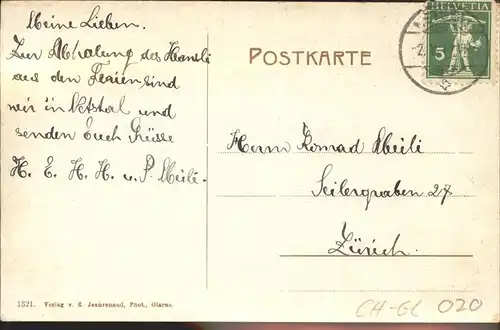 Meine Lieben.
Zur Abholung des Hansli
aus den Ferien sind
wir in Netstal und
senden Euch Grüsse
H. E. H. H. u. P. Meili.
POSTKARTE
HELVETIA
5
Herrn Konrad Meili
Seilergraben 27
Zürich.
1321. Verlag v. E. Jeanrenaud, Phot., Glarus.
CH-GL 020